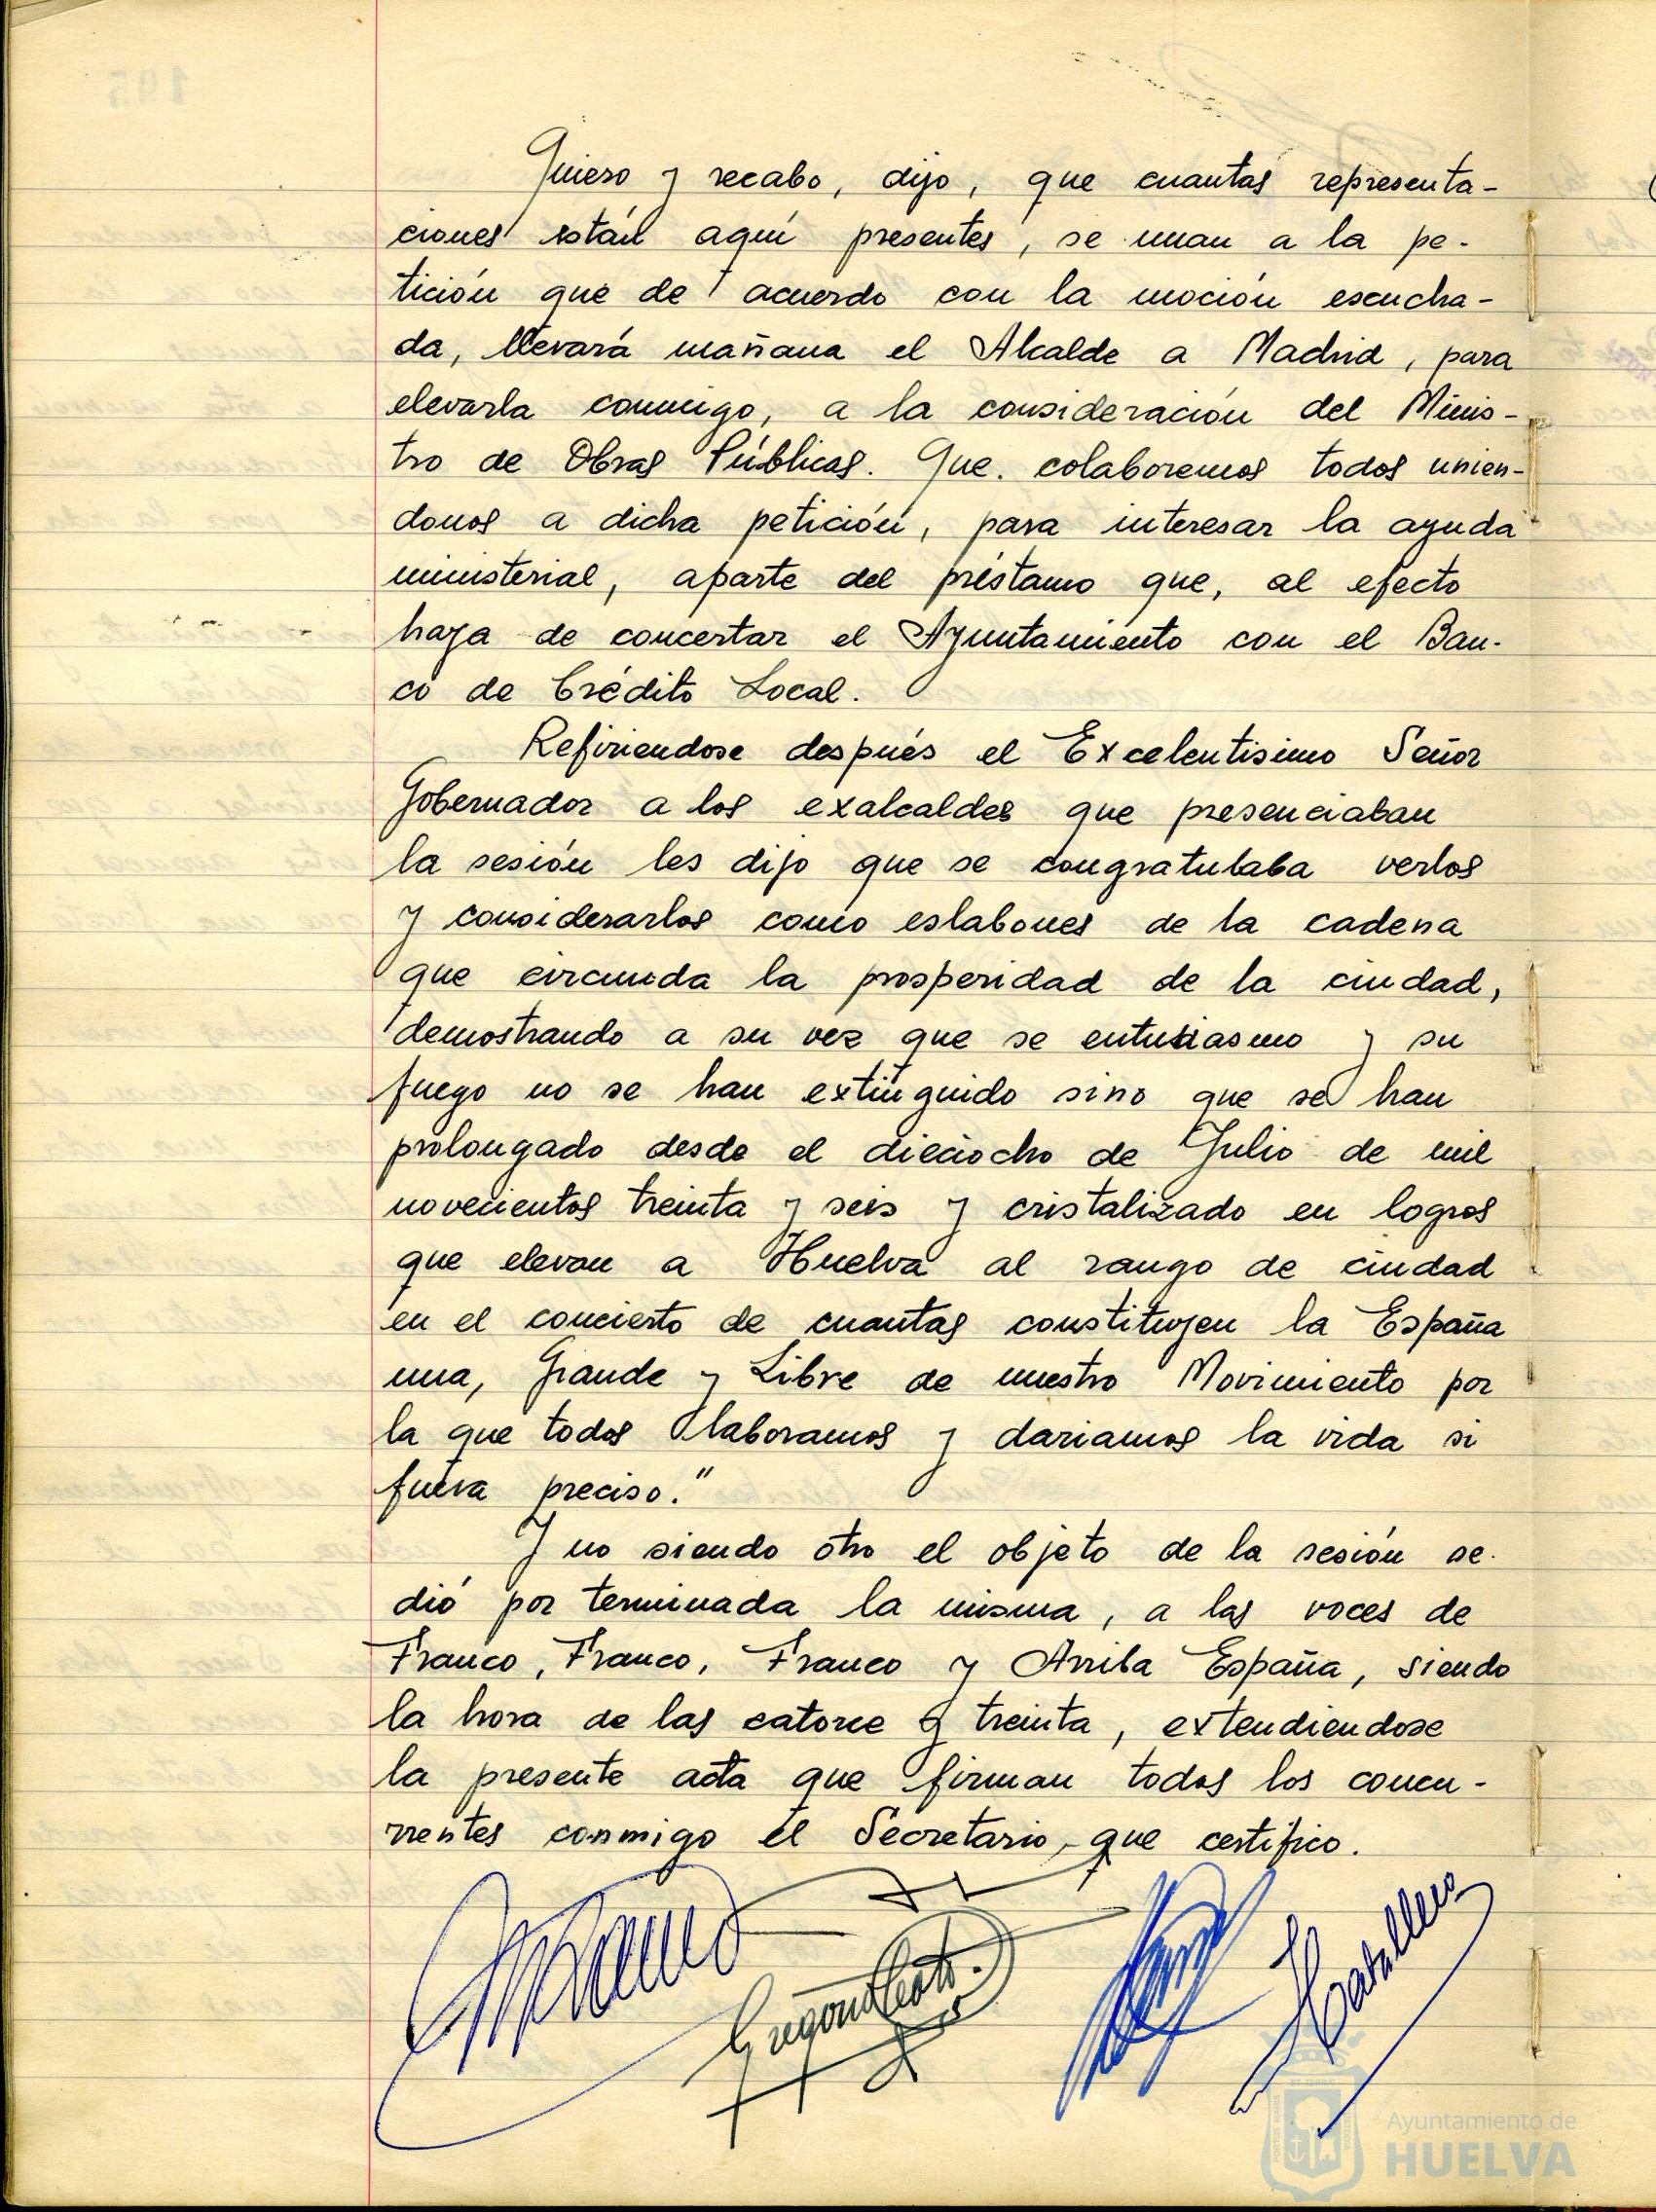 Quiero y recabo, dijo, que cuantas representa-
ciones están aquí presentes, se unan a la pe-
tición que de acuerdo con la moción escucha-
da, llevará mañana el Alcalde a Madrid, para
elevarla conmigo, a la consideración del Minis-
tro de Obras Públicas. Que. colaboremos todos unien-
donos a dicha petición, para interesar la ayuda
ministerial, aparte del préstamo que, al efecto
haya de concertar el Ayuntamiento con el Ban-
co de Crédito Local.
Refiriendose después el Excelentisimo Señor
Gobernador a los exalcaldes que presenciaban
la sesión les dijo que se congratulaba verlos
y considerarlos como eslabones de la cadena
que circunda la prosperidad de la ciudad,
demostrando a su vez que se entusiasmo y su
fuego no se han extinguido sino que se han
prolongado desde el dieciocho de Julio de mil
novecientos treinta y seis y cristalizado en logros
que elevan a Huelva al rango de ciudad
en el concierto de cuantas constituyen la España
una, Grande y Libre de nuestro Movimiento por
la que todos laboramos y dariamos la vida si
fuera preciso."
Y no siendo otro el objeto de la sesión se.
dió por terminada la misma, a las voces de
Franco, Franco, Franco y Arriba España, siendo
la hora de las catorce y treinta, extendiendose
la presente acta que firman todos los concu-
rrentes conmigo el Secretario, que certifico.
Caballero
Ayuntamiento de
HUELVA